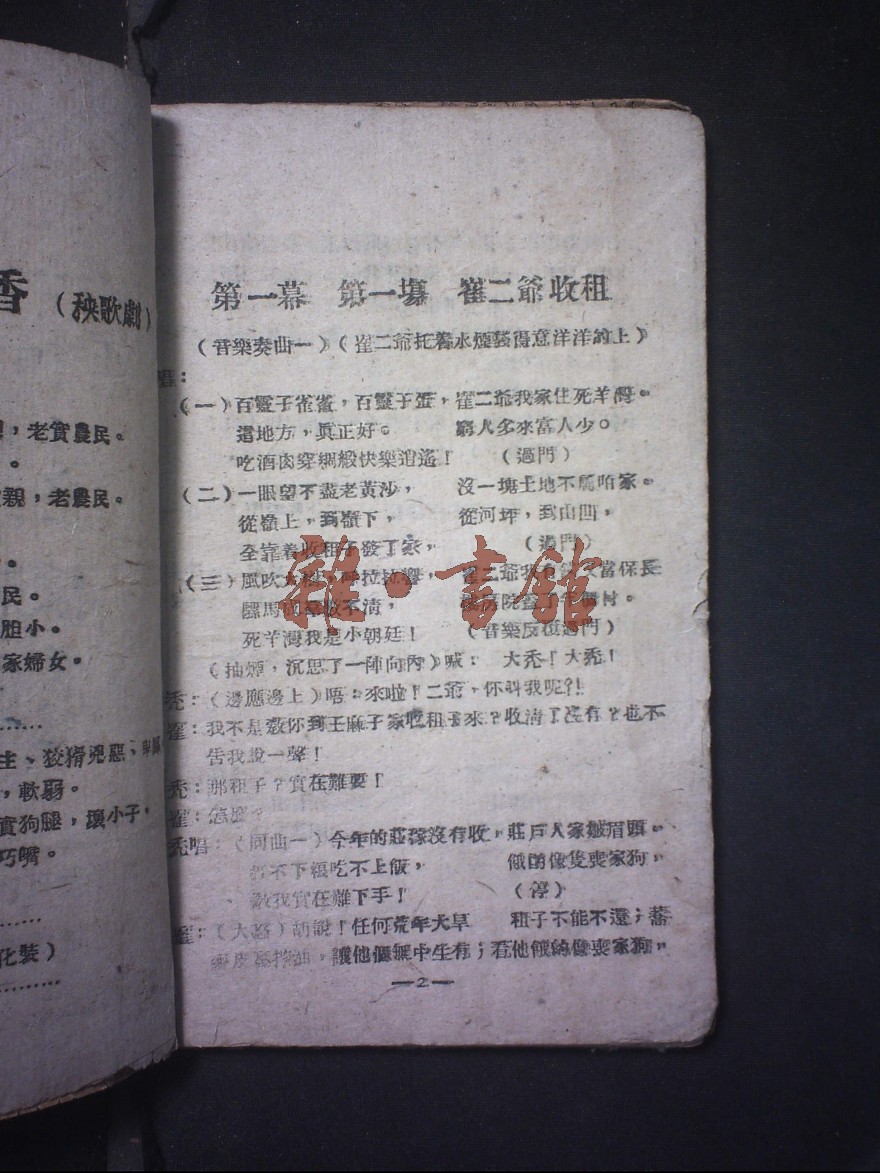 香（秧歌劇）
，老實農民。
。
親，老農民。
。
民。
胆小。
家婦女。
………
主、狡猾兇惡、
，軟弱。
實狗腿，壞小子，
巧嘴。
………
化裝）
………
第一幕　第一場　崔二爺收租
（音樂奏曲一）（崔二爺托着水煙袋得意洋洋的上）
唱：
（一）百靈子雀雀，百靈子蛋，崔二爺我家住死羊灣。
這地方，眞正好。　窮人多來富人少。
吃酒肉穿綢緞快樂逍遙！　（過門）
（二）一眼望不盡老黃沙，　沒一塊土地不屬咱家。
從嶺上，到嶺下，　從河坪，到山凹，
全靠着收租子發了家，　（過門）
（三）風吹大樹，呼拉拉響，　崔二爺我　當保長
騾馬　不清，　村。
死羊灣我是小朝廷！　（音樂反複過門）
（抽煙，沉思了一陣向內）喊：　大禿！大禿！
禿：（邊應邊上）唔：來啦！二爺，你叫我呢？！
崔：我不是敎你到王麻子家收租子來？收清了沒有？也不
告我說一聲！
禿：那租子？實在難要！
崔：怎麼？
禿唱：（同曲一）今年的莊稼沒有收，莊戶人家皺眉頭。
不下糧吃不上飯，　餓的像隻喪家狗，
敎我實在難下手！　（停）
崔：（大怒）胡說！任何荒年大旱　租子不能不還；蕎
麥皮　油，讓他個無中生有；看他餓的像喪家狗，
—2—
雜·書館